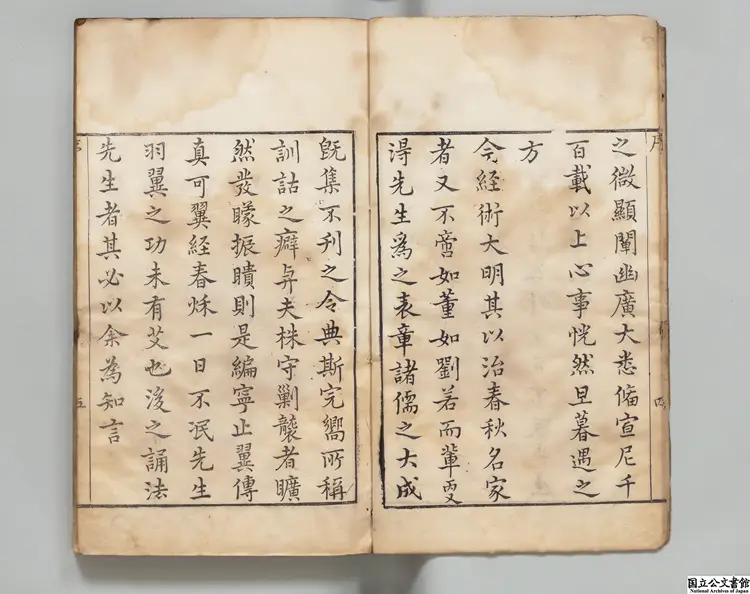 序
四
之微顯闡幽廣大悉備宣尼千
百載以上心事恍然旦暮遇之
方
今經術大明其以治春秋名家
者又不啻如董如劉若而軰更
淂先生爲之表章諸儒之大成
旣集不刋之令典斯完嚮所稱
訓詁之癖與夫株守剿襲者曠
然發矇振聵則是編寧止翼傳
真可翼經春秌一日不泯先生
羽翼之功未有艾也後之誦法
先生者其必以余為知言
五
国立公文書館
National Archives of Japan